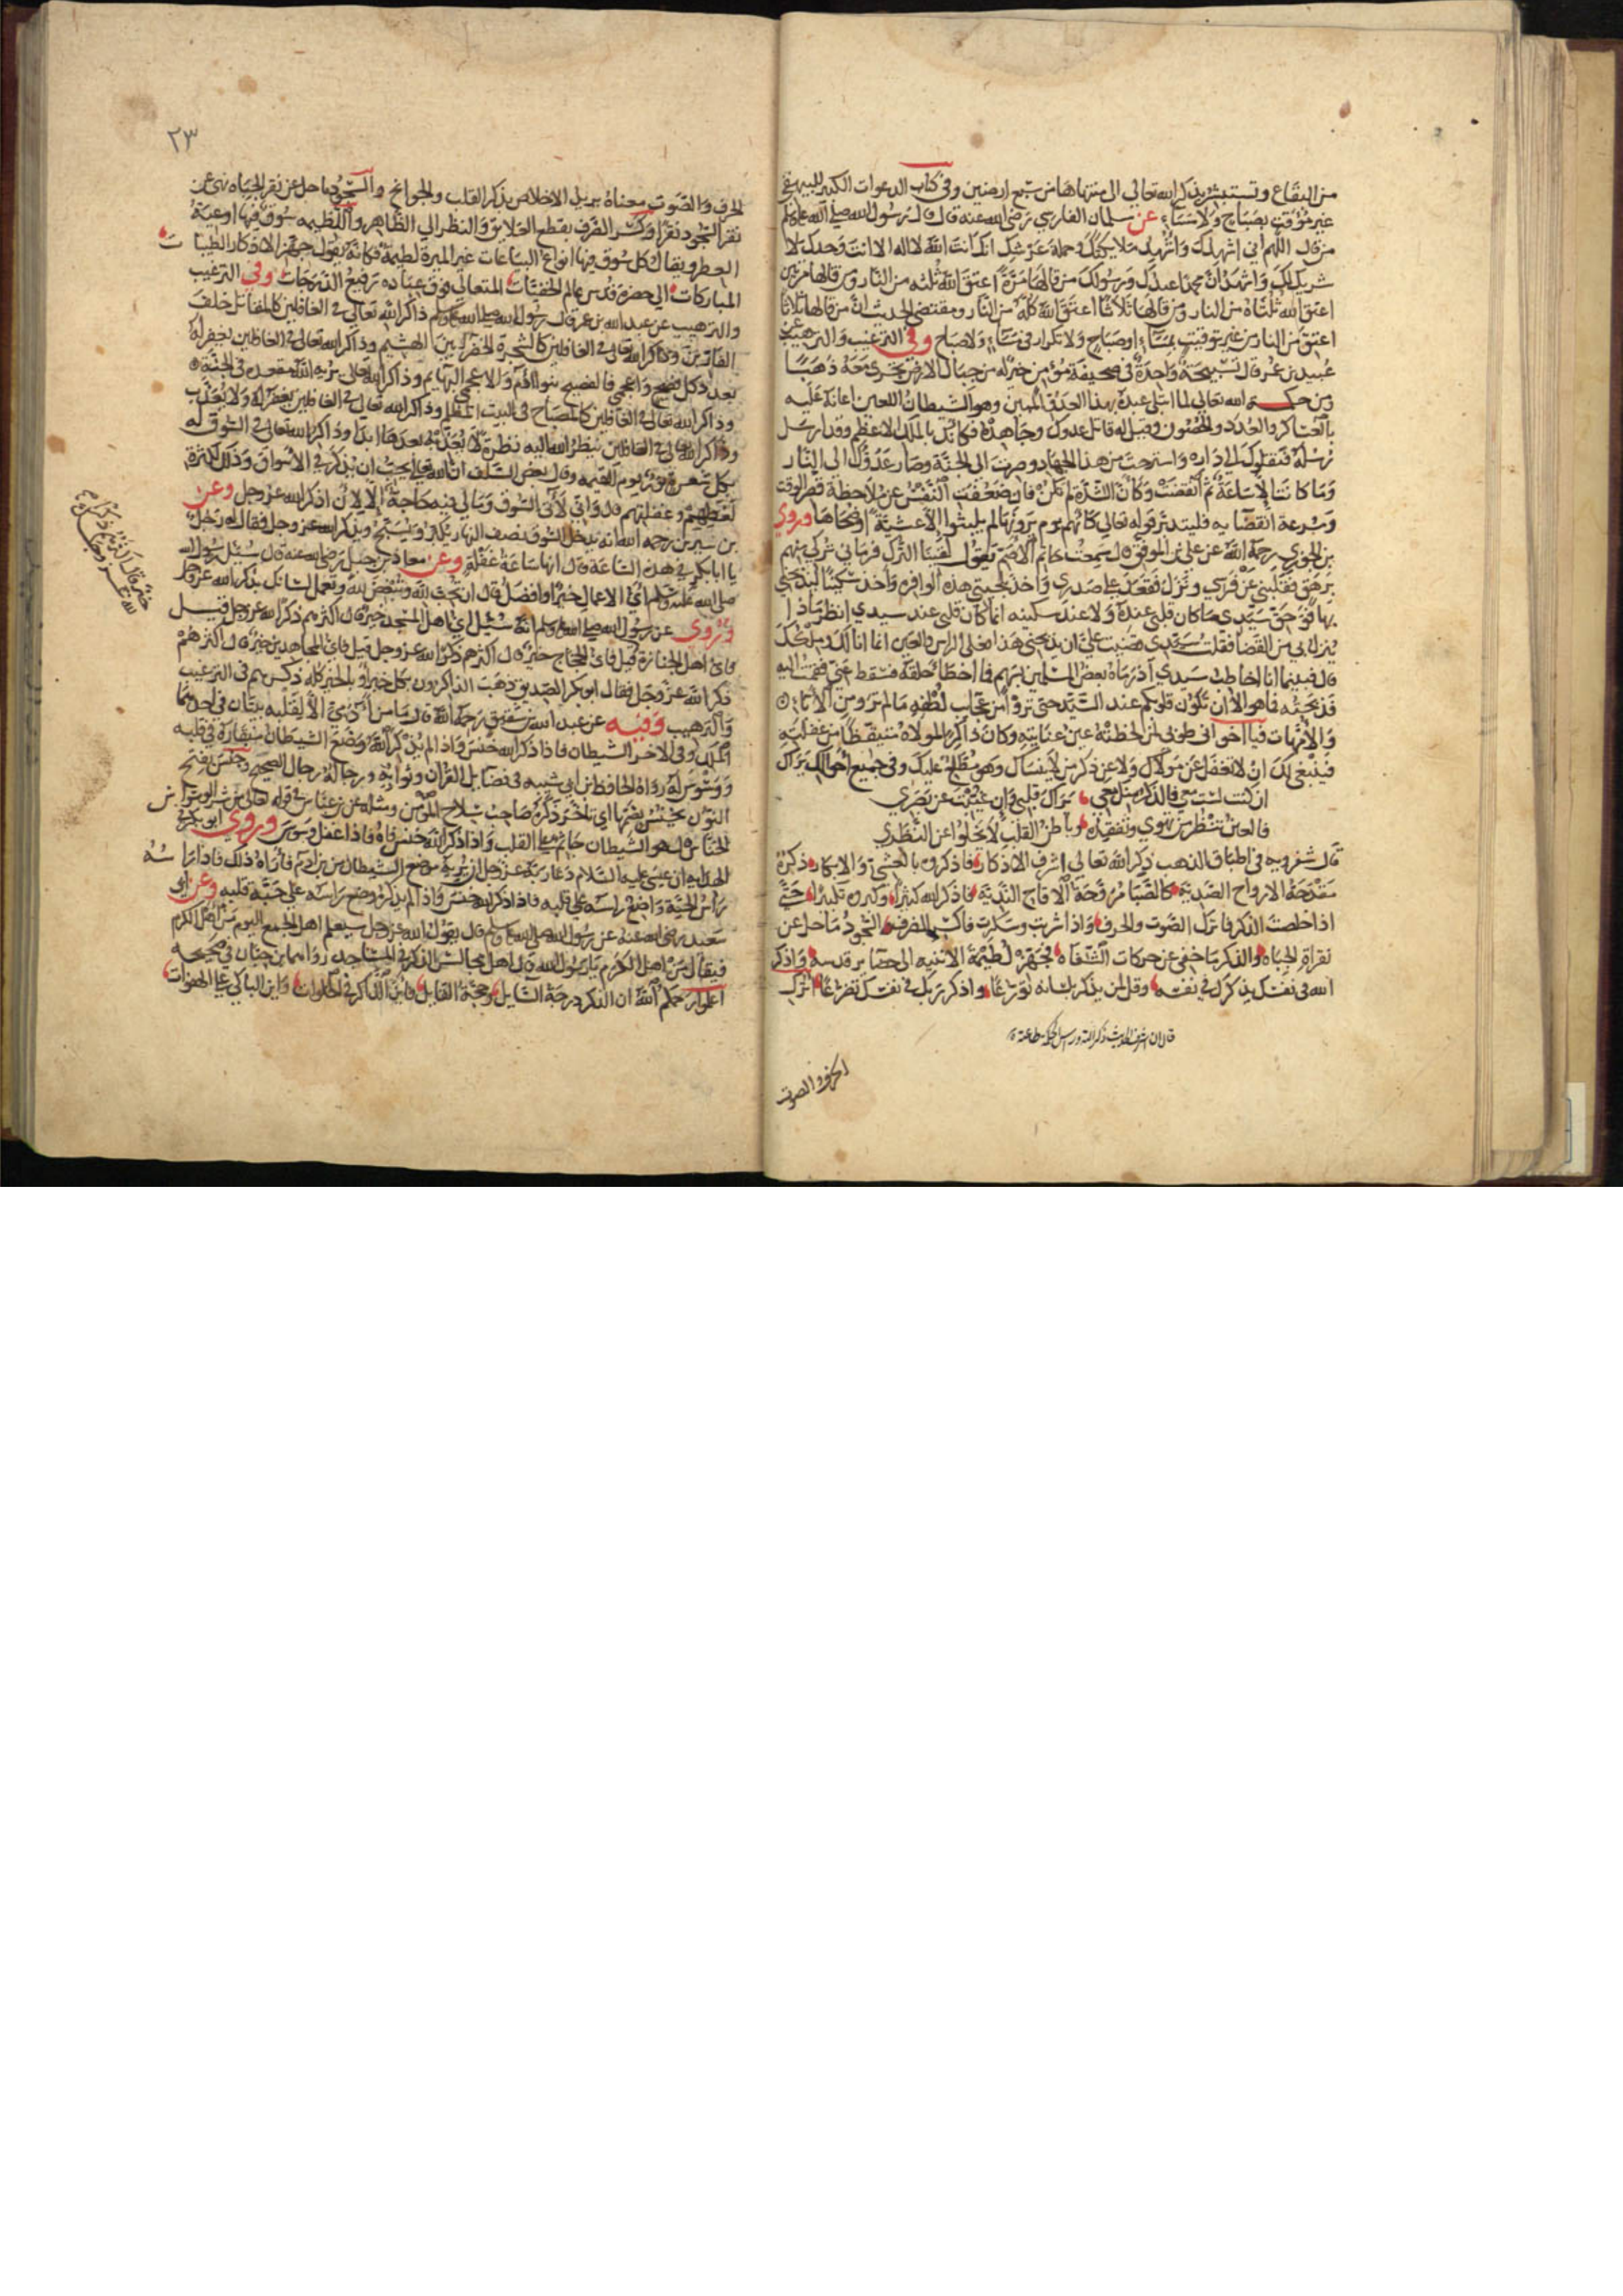 من البقاع وتستبشر بذكر الله تعالى الى منتهاها من سبع ارضين وفي كتاب الدعوات الكبير للبيهقي
غير موقت بصباح ولا مساء عن سلمان الفارسي رضي الله عنه قال قال رسول الله صلى الله عليه وسلم
من قال اللهم اني اشهدك واشهد ملايكتك وحملة عرشك انك انت الله لا اله الا انت وحدك لا
شريك لك واشهد ان محمدا عبدك ورسولك من قالها مرة اعتق الله ثلثه من النار ومن قالها مرتين
اعتق الله ثلثاه من النار ومن قالها ثلاثا اعتق الله كله من النار ومقتضى الحديث ان من قالها ثلاثا
اعتق من النار من غير توقيت بمساء او صباح ولا تكرار في مساء ولا صباح وفي الترغيب والترهيب عن
عبيد بن عمر قال تسبيحة واحدة في صحيفة مؤمن خير له من جبال الارض تجري معه ذهبا
ومن حكمة الله تعالى لما ابتلى عبده بهذا العدو المهين وهو الشيطان اللعين اعانه عليه
بالعساكر والعدد والحصون وقيل له قاتل عدوك وجاهده فكانك بالملك الاعظم وقد ارسل
رسله فنقلوك الى داره واسترحت من هذا الجهاد وصرت الى الجنة وصار عدوك الى النار
وما كانت الا ساعة ثم انقضت وكان الشدة لم تكن فان ضعفت النفس عن ملاحظة قصر الوقت
وسرعة انقضايه فليتدبر قوله تعالى كانهم يوم يرونها لم يلبثوا الا عشية او ضحاها وروي
بن الجوزي رحمه الله عن علي بن الموفق قال سمعت حاتم الاصم يقول لقينا الترك فرماني تركي منهم
بوهق فقلبني عن فرسي ونزل فقعد على صدري واخذ بلحيتي هذه الوافره واخذ سكينا ليذبحني
بها فوحق سيدي ما كان قلبي عنده ولا عند سكينه انما كان قلبي عند سيدي انظر ماذا
ينزل بي من القضا فقلت سيدي قضيت علي ان يذبحني هذا فعلى الراس والعين انما انا لك وملكك
قال فبينما انا اخاطب سيدي اذ رماه بعض المسلمين بسهم فما اخطا حلقه فسقط عني فقمت اليه
فذبحته فما هو الا ان تكون قلوبكم عند السيد حتى تروا من عجايب لطفه ما لم تروه من الاباء
والامهات فيا اخواني طوبى لمن لحظته عين عنايته وكان ذاكر المولاه متيقظا من غفلته
فينبغي لك ان لا تغفل عن مولاك ولا عن ذكر من لا ينساك وهو مطلع عليك وفي جميع احوالك يراك
ان كنت لست معي فالذكر منك معي يراك قلبي وان غيبت عن بصري
فالعين تنظر من تهوى وتفقده وباطن القلب لا يخلوا عن النظر
قال شفرويه في اطباق الذهب ذكر الله تعالى اشرف الاذكار فاذكروه بالعشي والابكار ذكره
مقدحة الارواح الصدية كالصبا مروحة الاقاح الندية فاذكر الله كثيرا وكبره تكبيرا حتى
اذا خلصت الذكر فاترك الصوت والحرف واذا شربت وسكرت فاكسر الظرف السجود ما حل عن
نقرات الجباه والذكر ما خفي عن حركات الشفاه فجهزه لطيمة الاثنيه الى حضاير قدسه واذكر
الله في نفسك يذكرك في نفسه وقل لمن يذكر بلسانه تورعا واذكر ربك في نفسك تضرعا اترك
قال ان اشرف الحديث ذكر الله وراس الحكمة طاعته
الحرف والصوت
٢٣
الحرف والصوت معناه يريد الاخلاص بذكر القلب والجوانح والسجود ما حل عن نقر الجباه نهي عن
نقر السجود نقرا وكسر الظرف بقطع العلايق والنظر الى الظاهر واللطيمه سوق فيها اوعية
العطر ويقال كل سوق فيها انواع البياعات غير الميرة لطيمة فكانه يقول جهز الاذكار الطيبات
المباركات الى حضرة قدس عالم الخفيات المتعالي فوق عباده رفيع الدرجات وفي الترغيب
والترهيب عن عبد الله بن عمر قال رسول الله صلى الله عليه وسلم ذاكر الله تعالى في الغافلين كالمقاتل خلف
الفارين وذاكر الله تعالى في الغافلين كالشجرة الخضراء بين الهشيم وذاكر الله تعالى في الغافلين يغفر له
بعدد كل فصيح واعجمي فالفصيح بنوا ادم والاعجمي البهايم وذاكر الله تعالى يريه الله مقعده في الجنة
وذاكر الله تعالى في الغافلين كالمصباح في البيت المظلم وذاكر الله تعالى في الغافلين يغفر له ولا يعذب
وذاكر الله تعالى في الغافلين ينظر الله اليه نظرة لا يعذبه بعدها ابدا وذاكر الله تعالى في السوق له
بكل شعرة نور يوم القيمه وقال بعض السلف ان الله تعالى يحب ان يذكر في الاسواق وذلك لكثرة
لغطهم وغفلتهم قال واني لاتي السوق ومالي فيه حاجة الا لان اذكر الله عز وجل وعن
بن سيرين رحمه الله انه يدخل السوق نصف النهار يكبر ويسبح ويذكر الله عز وجل فقال له رجل
يا ابا بكر في هذه الساعة قال انها ساعة غفلة وعن معاذ بن جبل رضي الله عنه قال سئل رسول الله
صلى الله عليه وسلم اي الاعمال خير او افضل قال ان تحب لله وتبغض لله وتعمل لسانك بذكر الله عز وجل
وروي عن رسول الله صلى الله عليه وسلم انه سئل اي اهل المسجد خير قال اكثرهم ذكر الله عز وجل قيل
فاي اهل الجنازة قيل فاي الحجاج خير قال اكثرهم ذكر الله عز وجل قيل فاي المجاهدين خير قال اكثرهم
ذكر الله عز وجل فقال ابو بكر الصديق ذهب الذاكرون بكل خير او بالخير كله ذكرهم في الترغيب
والترهيب وفيه عن عبد الله بن شقيق رحمه الله قال ما من ادمي الا لقلبه بيتان في احدهما
الملك وفي الاخر الشيطان فاذا ذكر الله خنس واذا لم يذكر الله وضع الشيطان منقاره في قلبه
ووسوس له رواه الحافظ بن ابي شيبه في فضايل القران وثوابه ورجاله رجال الصحيح وخنس بفتح
النون يخنس بضمها اي تاخر ذكره صاحب سلاح المؤمن ومثله عن بن عباس في قوله تعالى من شر الوسواس
الخناس قال هو الشيطان جاثم على القلب واذا ذكر الله خنس فاه فاذا غفل وسوس وروي ابو بكر
الهذلي ان عيسى عليه السلام دعا ربه عز وجل ان يريه موضع الشيطان من بن ادم فاراه ذلك فاذا راسه
راس الحية واضع راسه على قلبه فاذا ذكر الله خنس واذا لم يذكر وضع راسه على حبة قلبه وعن ابي
سعيد رضي الله عنه عن رسول الله صلى الله عليه وسلم قال يقول الله عز وجل سيعلم اهل الجمع اليوم من اهل الكرم
فيقال من اهل الكرم يا رسول الله قال اهل مجالس الذكر في المساجد رواهما بن حبان في صحيحه
اعلموا رحمكم الله ان الذكر درجة السايل وحجة القايل فاين الذاكر في الخلوات واين الباكي على الهفوات
خير قال اكثرهم ذكرا
لله عز وجل